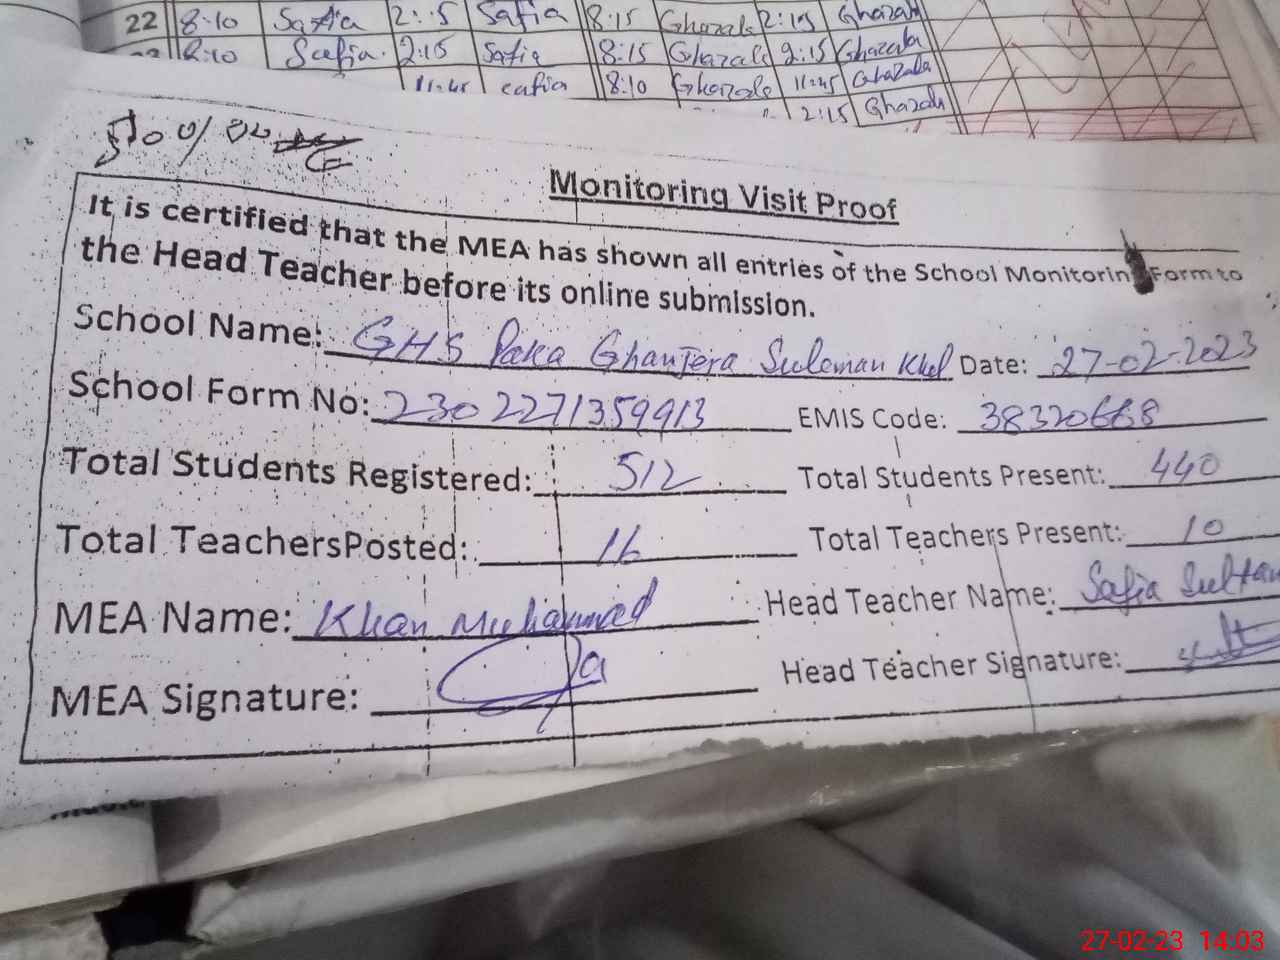 22 8:10 Safia 2:15 Safia 8:15 Ghazala 2:15 Ghazala
8:10 Safia. 2:15 Safia 8:15 Ghazala 2:15 Ghazala
11:45 Safia 8:10 Ghazala 11:45 Ghazala
2:15 Ghazala
Monitoring Visit Proof
It is certified that the MEA has shown all entries of the School Monitoring Form to
the Head Teacher before its online submission.
School Name: GHS Paka Ghanjera Suleman Khel Date: 27-02-2023
School Form No: 2302271359913 EMIS Code: 38320668
Total Students Registered: 512 Total Students Present: 440
Total TeachersPosted: 16 Total Teachers Present: 10
MEA Name: Khan Muhammad Head Teacher Name: Safia Sultan
MEA Signature: Head Teacher Signature:
27-02-23 14:03